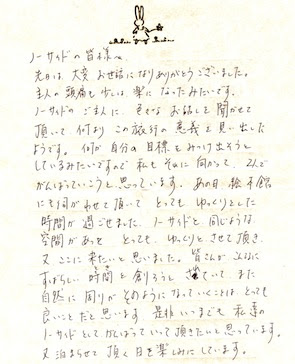 ノーサイドの皆様へ
先日は、大変お世話になりありがとうございました。
主人の頭痛も少しは楽になったみたいです。
ノーサイドのご主人に、色々なお話しを聞かせて
頂いて何より この旅行の意義を見い出した
ようです。何か自分の目標をみつけ出そうと
しているみたいですので 私も それに向かって、2人で
がんばっていこうと思っています。あの日、絵本館
にも伺わせて頂いて とっても ゆっくりとした
時間が過ごせました。ノーサイドと同じような
空間があって とっても、ゆっくりさせて頂き、
又ここに来たいと思いました。皆さんが、こんなに
すばらしい時間を創ろうと ていて、また
自然に周りがそのようになっていくことは、とっても
良いことだと思います。是非いつまでも 私達の
ノーサイドとしてがんばっていて頂きたいと思っています。
又 泊まらせて頂く日を楽しみにしています。